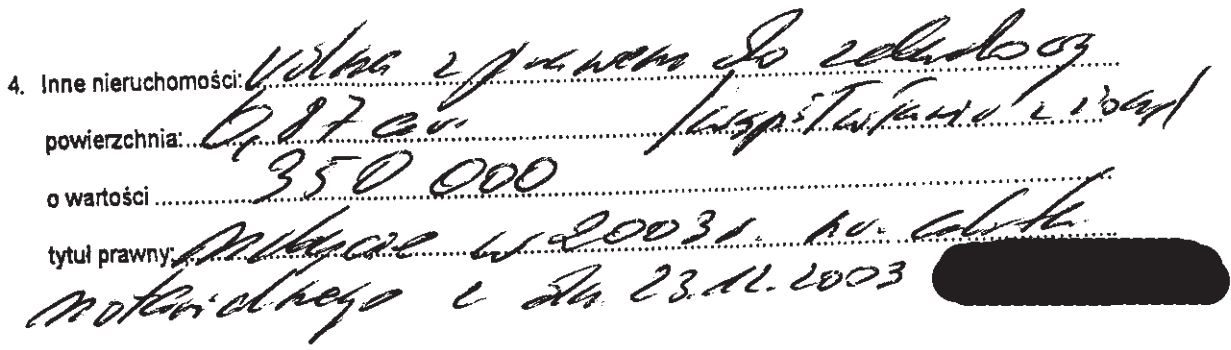 4. Inne nieruchomości: rolna z prawem do zabudowy
powierzchnia: 0,87 współwłasn z żoną
o wartości 350 000
tytuł prawny: nabycie w 2003 r.
notarialnego z dn. 23.12.2003